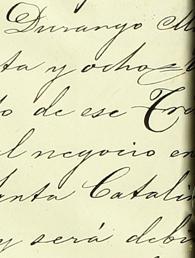 Durango
ta y ocho
o de ese Tr
l negocio en
anta Catali
y será deb